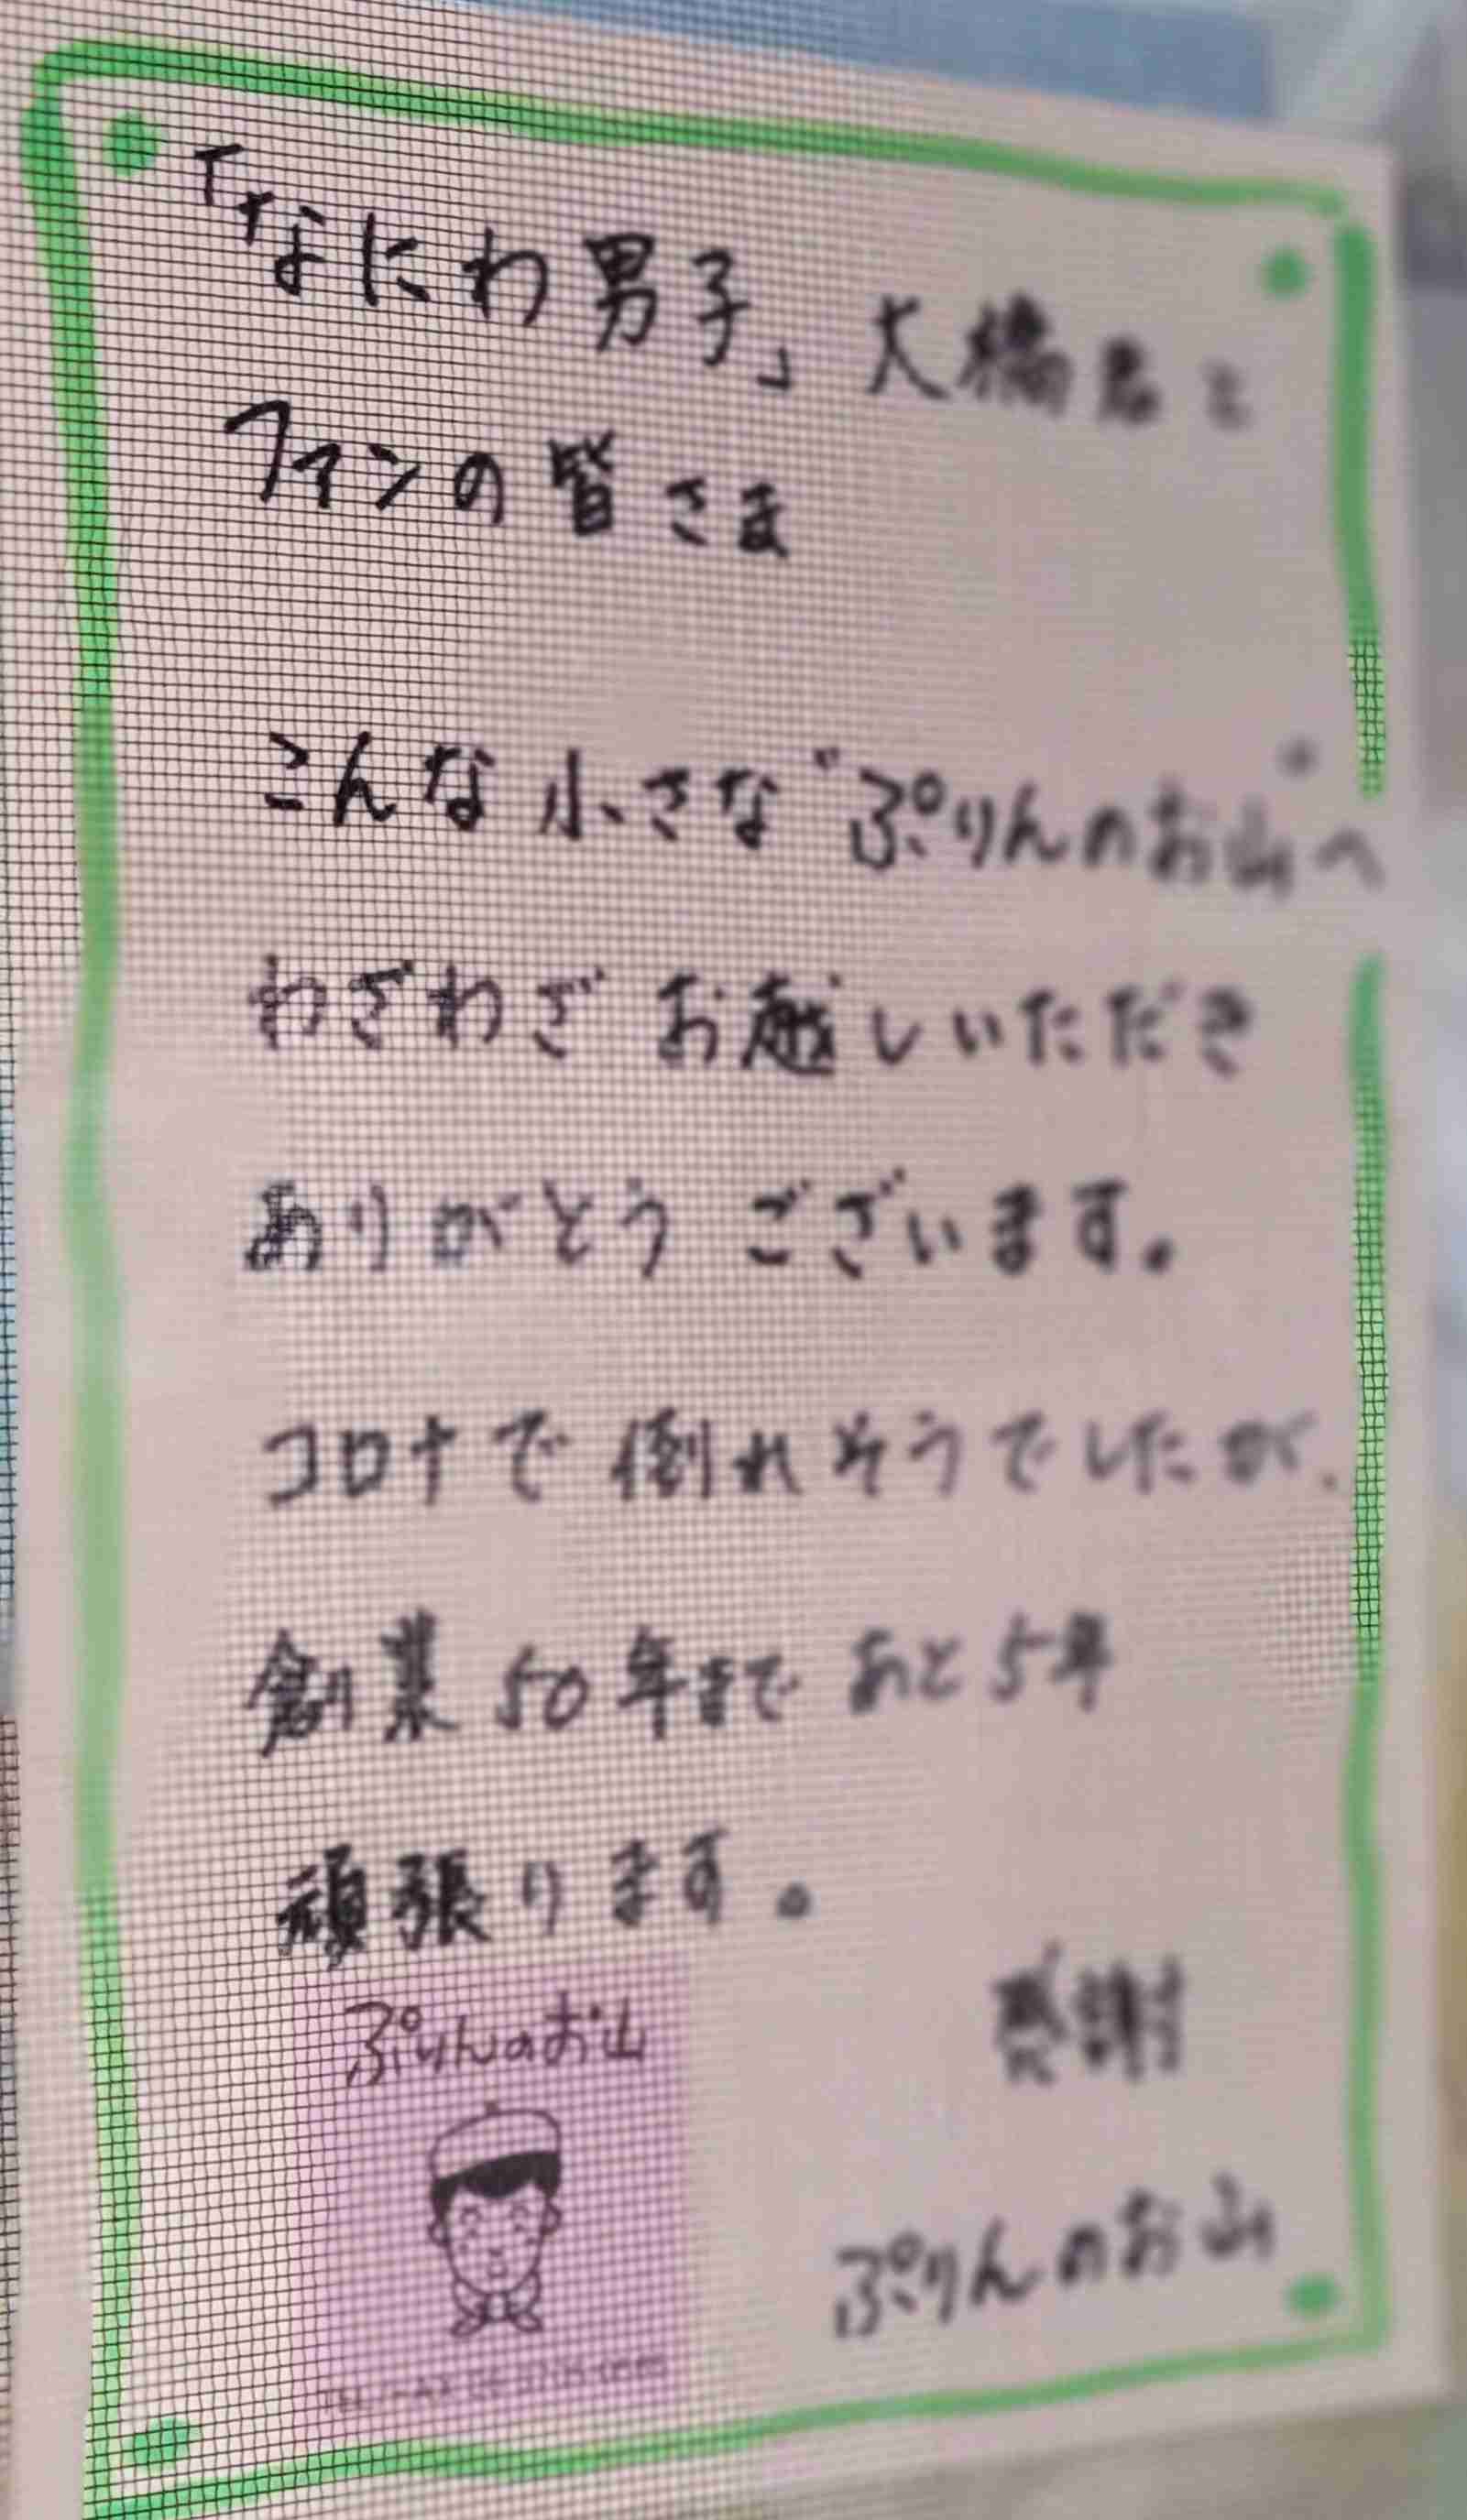 「なにわ男子」大橋君と
ファンの皆さま
こんな小さな"ぷりんのお山"へ
わざわざお越しいただき
ありがとうございます。
コロナで倒れそうでしたが、
創業50年まであと5年
頑張ります。
感謝
ぷりんのお山
ぷりんのお山